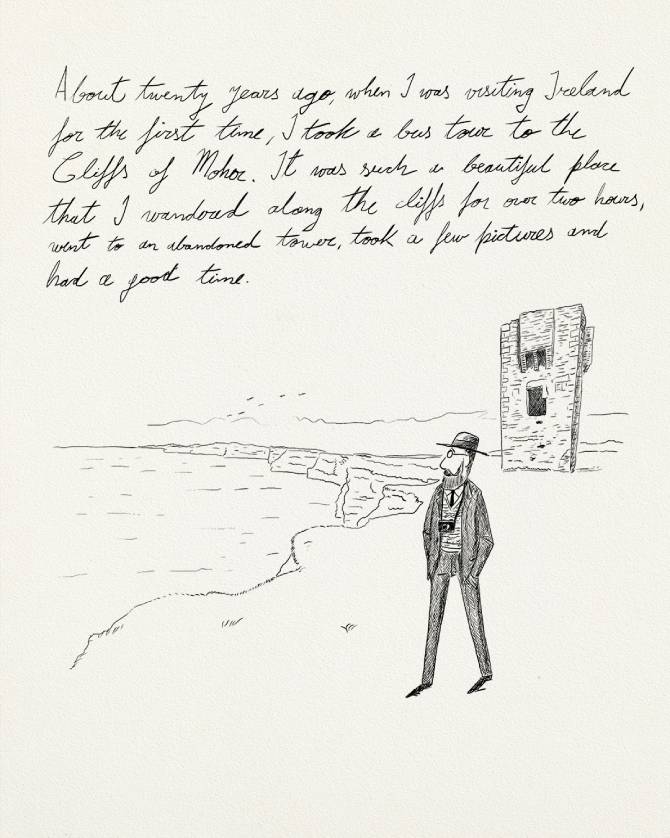 About twenty years ago, when I was visiting Ireland
for the first time, I took a bus tour to the
Cliffs of Moher. It was such a beautiful place
that I wandered along the cliffs for over two hours,
went to an abandoned tower, took a few pictures and
had a good time.